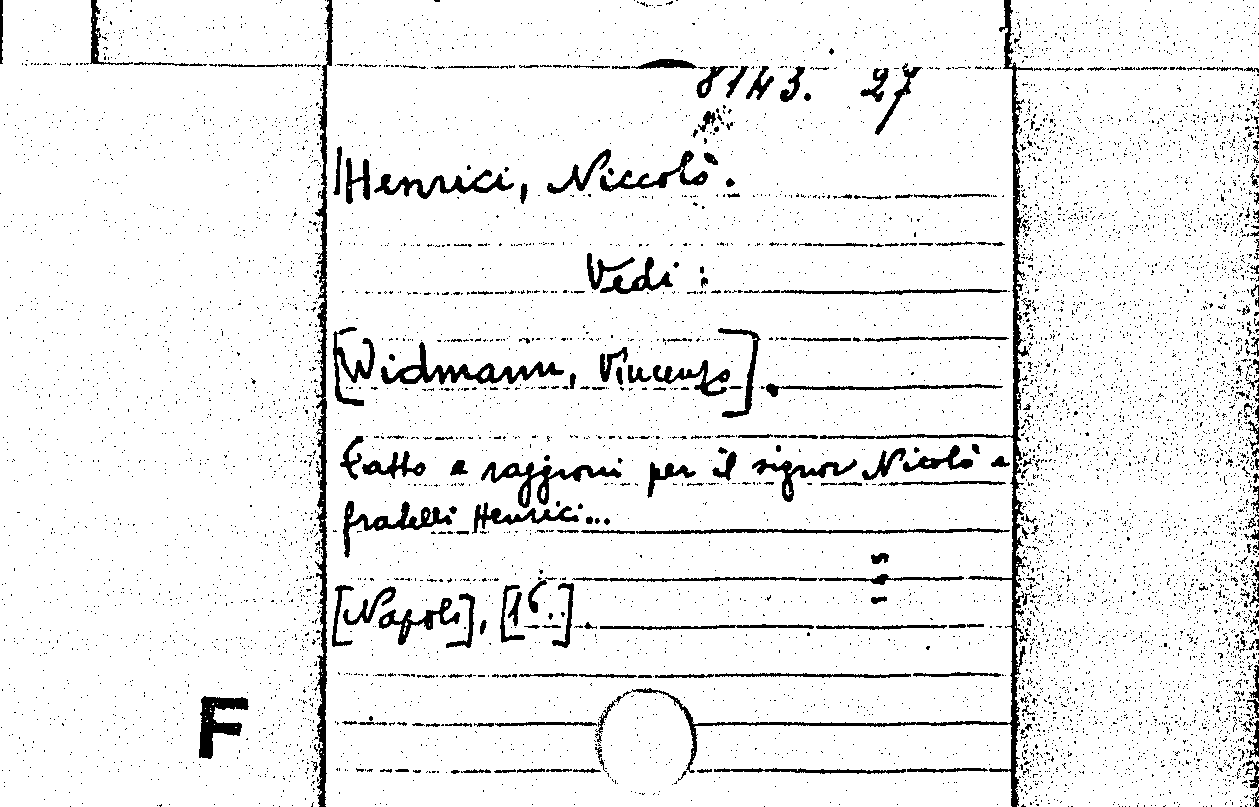 8143. 27
Henrici, Niccolò.
Vedi :
[Widmann, Vincenzo].
Fatto e raggioni per il signor Nicolò e
fratelli Henrici...
[Napoli], [16..].
F